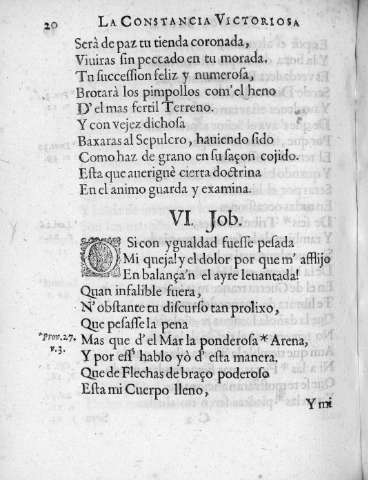 20 LA CONSTANCIA VICTORIOSA
Serà de paz tu tienda coronada,
Viuiras sin peccado en tu morada.
Tu succession feliz y numerosa,
Brotarà los pimpollos com' el heno
D'el mas fertil Terreno.
Y con vejez dichosa
Baxaras al Sepulcro, hauiendo sido
Como haz de grano en su saçon cojido.
Esta que aueriguè cierta doctrina
En el animo guarda y examina.
VI. Job.
O Si con ygualdad fuesse pesada
Mi queja! y el dolor por que m' afflijo
En balança'n el ayre leuantada!
Quan infalible fuera,
N'obstante tu discurso tan prolixo,
Que pesasse la pena
*Prov. 27. v. 3. Mas que d'el Mar la ponderosa * Arena,
Y por ess' hablo yò d' esta manera.
Que de Flechas de braço poderoso
Esta mi Cuerpo lleno,
Y mi